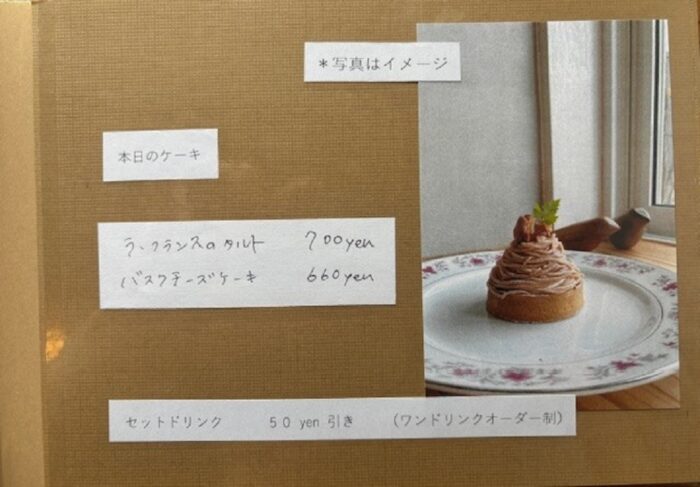 ＊写真はイメージ
本日のケーキ
ラ・フランスのタルト 700yen
バスクチーズケーキ 660yen
セットドリンク 50 yen 引き （ワンドリンクオーダー制）